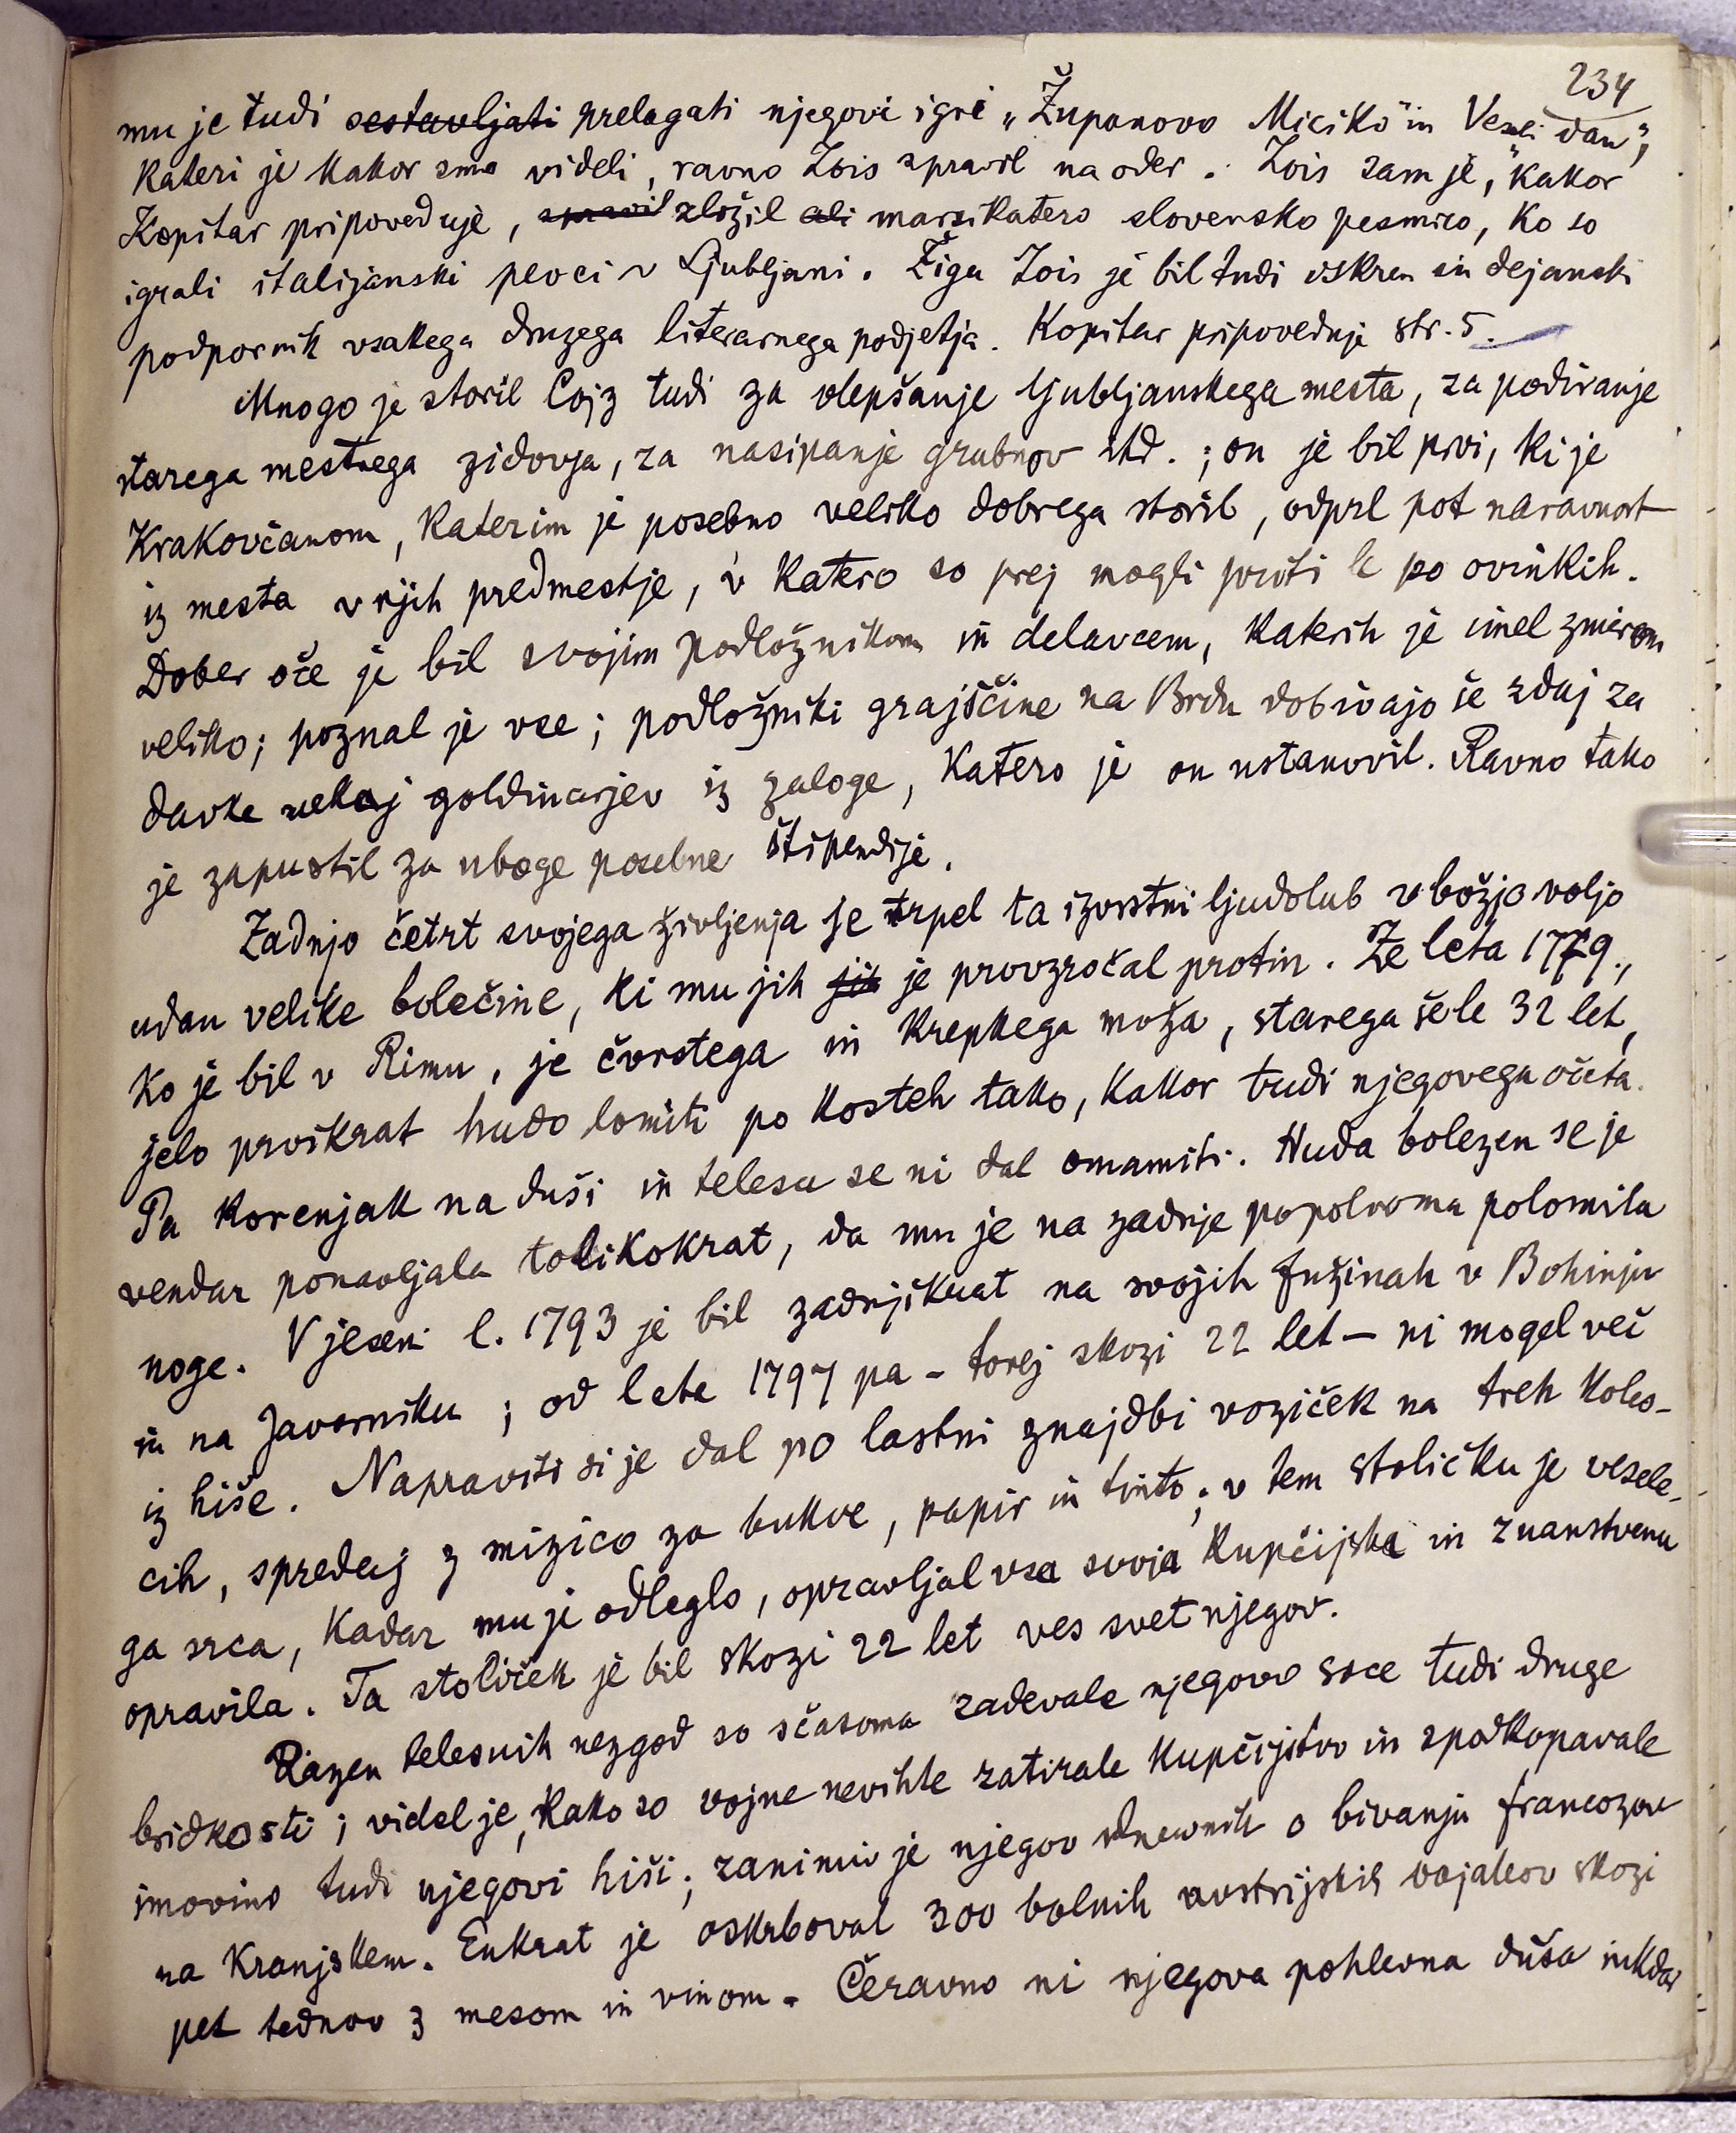 234
mu je tudi sestavljati prelagati njegovi igri „Županovo Miciko" in Veseli dan",
kateri je kakor smo videli, ravno Zois spravil na oder. Zois sam je, kakor
Kopitar pripoveduje, spravil zložil ali marsikatero slovensko pesmico, ko so
igrali italijanski pevci v Ljubljani. Žiga Zois je bil tudi iskren in dejanski
podpornik vsakega druzega literarnega podjetja. Kopitar pripoveduje str. 5.
Mnogo je storil Cojz tudi za olepšanje ljubljanskega mesta, za podiranje
starega mestnega zidovja, za nasipanje grabnov itd.; on je bil prvi, ki je
Krakovčanom, katerim je posebno veliko dobrega storil, odprl pot naravnost
iz mesta v njih predmestje, v katero so prej mogli priti le po ovinkih.
Dober oče je bil svojim podložnikom in delavcem, katerih je imel zmirom
veliko; poznal je vse; podložniki grajščine na Brdu dobivajo še zdaj za
davke nekaj goldinarjev iz zaloge, katero je on ustanovil. Ravno tako
je zapustil za uboge posebne štipendije.
Zadnjo četrt svojega življenja je trpel ta izvrstni ljudolub v božjo voljo
udan velike bolečine, ki mu jih jih je provzročal protin. Že leta 1779.,
ko je bil v Rimu, je čvrstega in krepkega moža, starega šele 32 let,
jelo prvikrat hudo lomiti po kosteh tako, kakor tudi njegovega očeta.
Ta korenjak na duši in telesu se ni dal omamiti. Huda bolezen se je
vendar ponavljala tolikokrat, da mu je na zadnje popolnoma polomila
noge. V jeseni l. 1793 je bil zadnjikrat na svojih fužinah v Bohinju
in na Javorniku; od leta 1797 pa - torej skozi 22 let – ni mogel več
iz hiše. Napraviti si je dal po lastni znajdbi voziček na treh koles-
cih, spredaj z mizico za bukve, papir in tinto; v tem stoličku je vesele-
ga srca, kadar mu je odleglo, opravljal vsa svoja kupčijska in znanstvena
opravila. Ta stoliček je bil skozi 22 let ves svet njegov.
Razen telesnih nezgod so sčasoma zadevale njegovo srce tudi druge
bridkosti; videl je, kako so vojne nevihte zatirale kupčijstvo in spodkopavale
imovino tudi njegovi hiši; zanimiv je njegov dnevnik o bivanju francozov
na Kranjskem. Enkrat je oskrboval 300 bolnih avstrijskih vojakov skozi
pet tednov z mesom in vinom. Čeravno ni njegova pohlevna duša nikdar